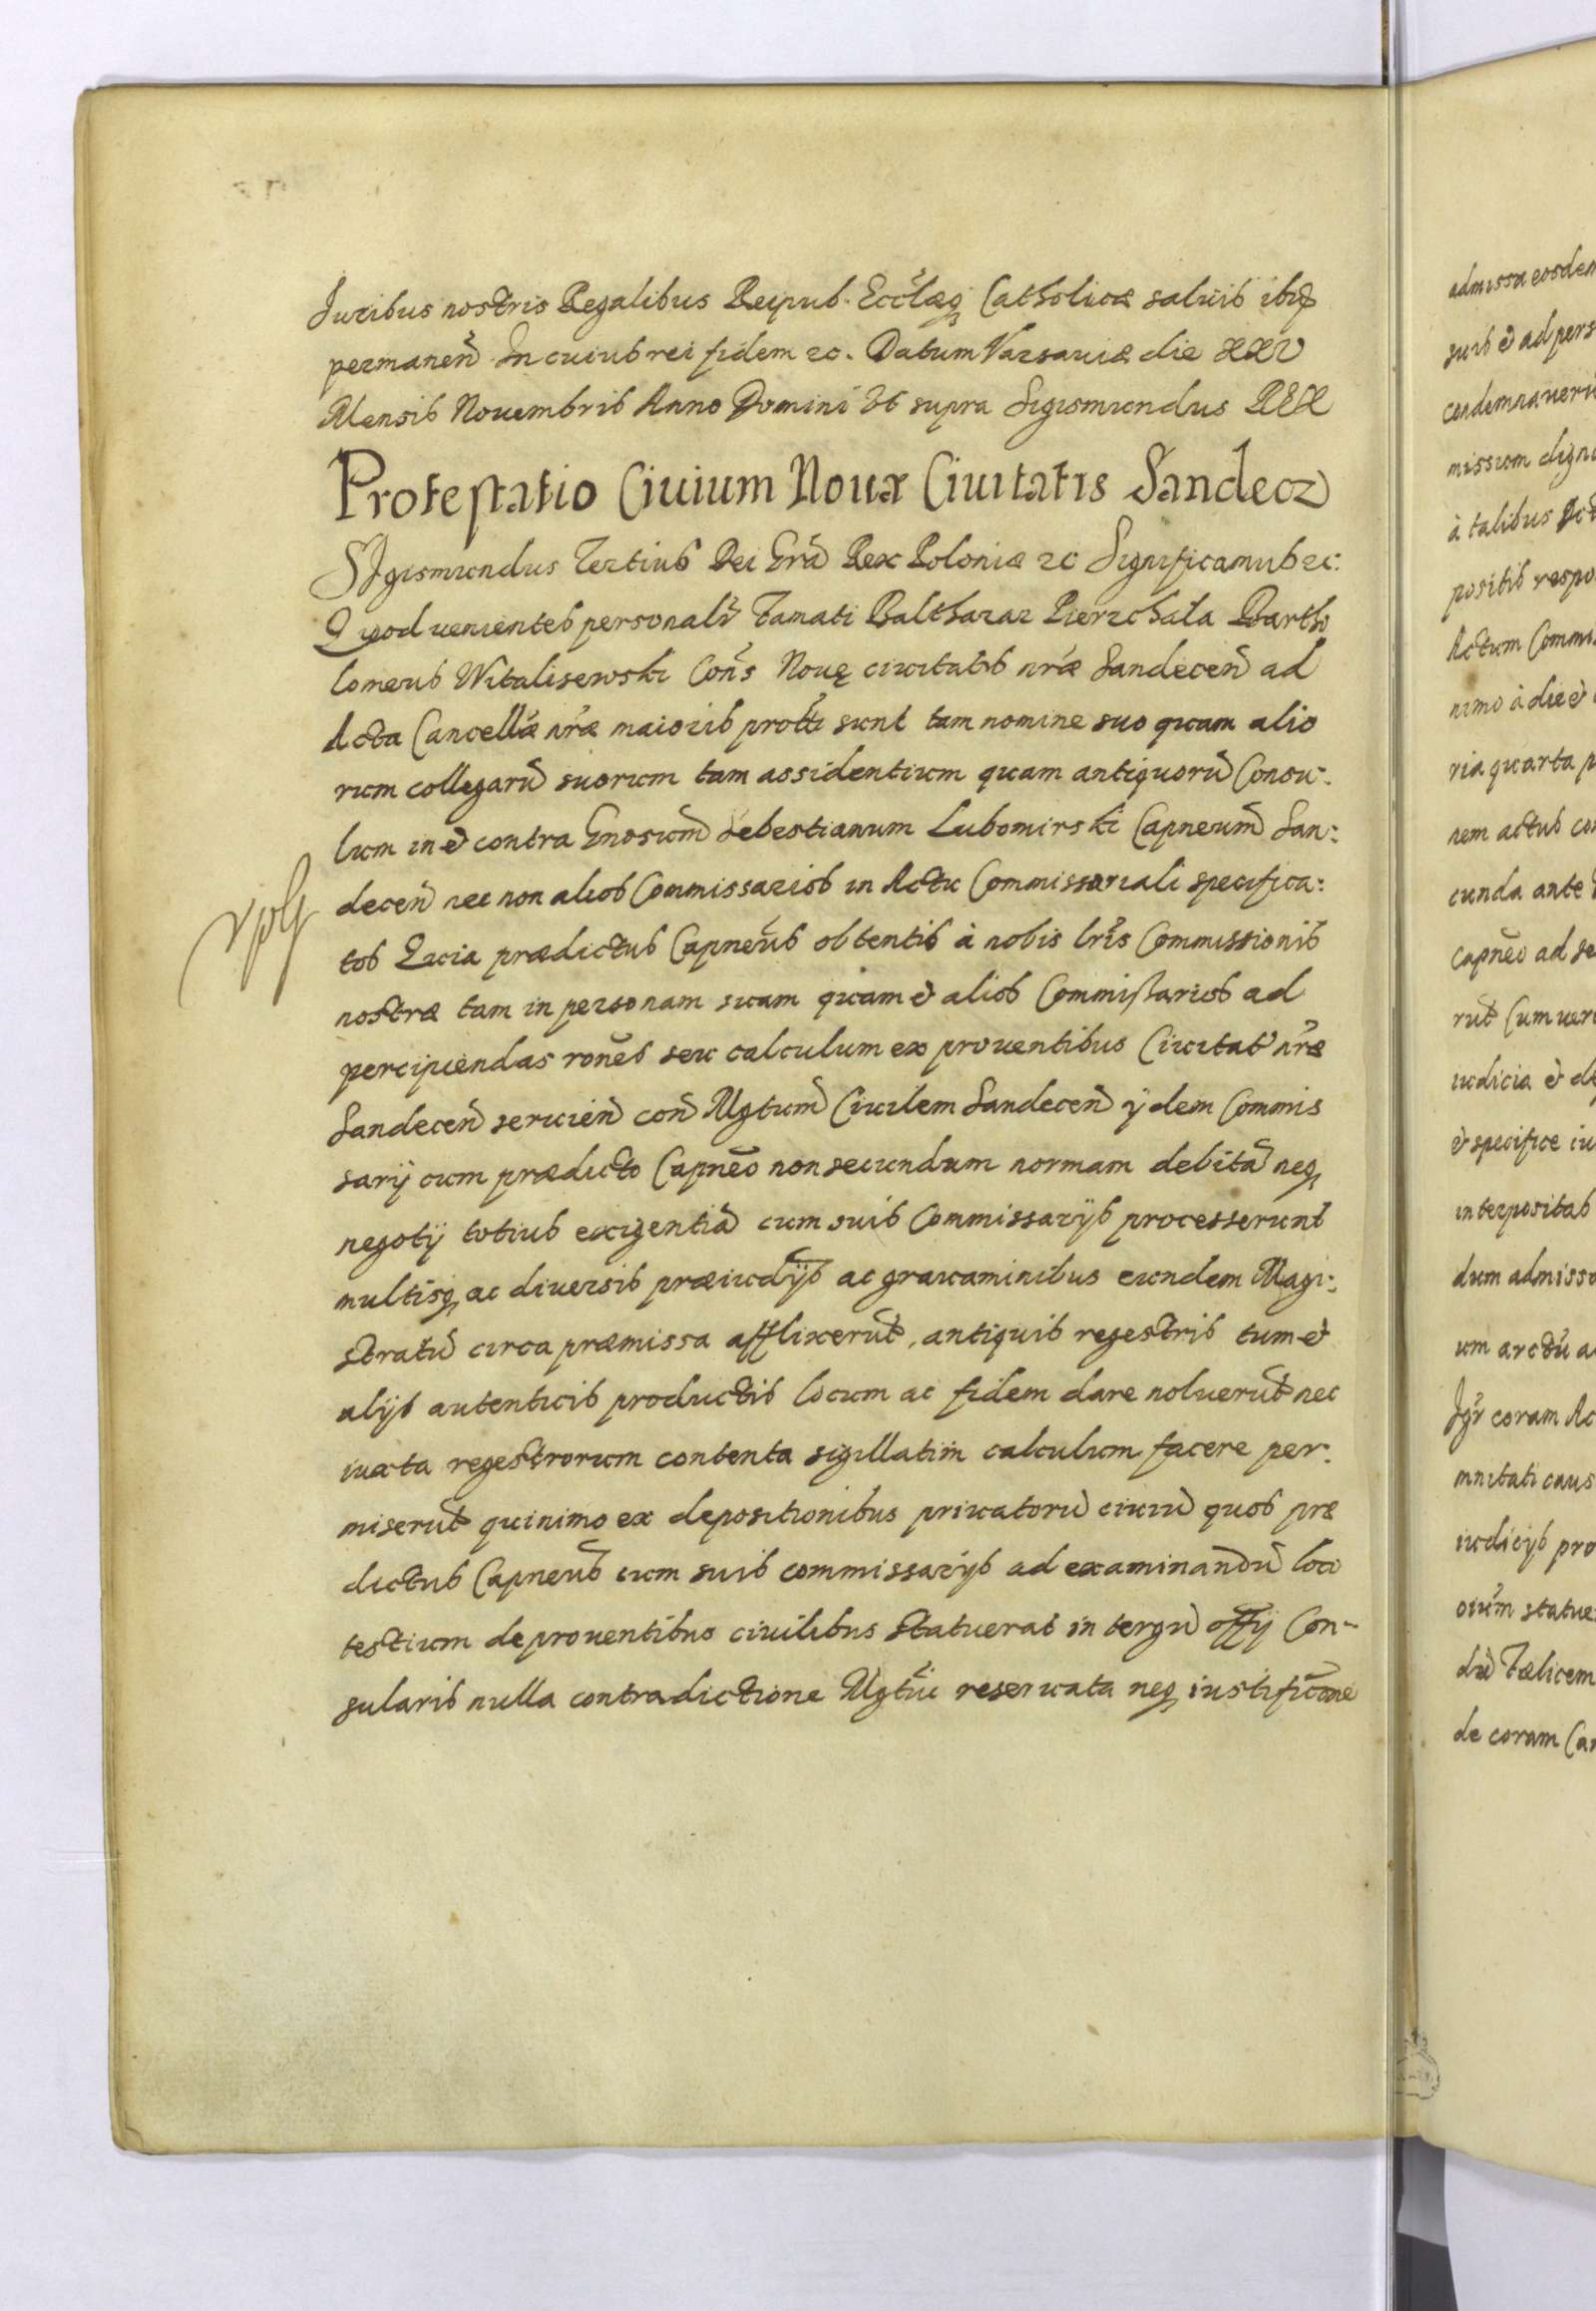 Juribus nostris Regalibus Reipub. Eccłæq Catholicæ saluis ibiq
permaneñ In cuius rei fidem etc. Datum Varsauiæ die XXV
Mensis Nouembris Anno Domini Vt supra Sigismundus REX
Protestatio Ciuium Nouæ Ciuitatis Sandecz
SIgismundus Tertius Dei Grã Rex Poloniæ etc Significamus etc:
Quod uenientes personalr̃ famati Balthazar Pierzchała Bartho
lomeus Witalisewski Cons Nouę ciuitatis nræ Sandeceñ ad
Acta Cancellæ nræ maioris protti sunt tam nomine suo quam alio
rum collegarũ suorum tam assidentium quam antiquorũ Consu-
lum in et contra Gnosum Sebestianum Lubomirski Capneum San:
deceñ nec non alios Commissarios in Actu Commissariali specifica:
tos Quia prædictus Capneus obtentis à nobis lris Commissionis
nostræ tam in personam suam quam et alios Commissarios ad
percipiendas rones seu calculum ex prouentibus Ciuitat nræ
Sandeceñ seruieñ coñ Mgtum Ciuilem Sandeceñ ijdem Commis
sarij cum prædicto Capneo non secundum normam debitã neq
negotij totius exigentiã cum suis Commissarijs processerunt
multisq ac diuersis præiudijs ac grauaminibus eundem Magi:
stratũ circa præmissa afflixerut, antiquis regestris tum et
alijs autenticis productis locum ac fidem dare noluerut nec
iuxta regestrorum contenta sigillatim calculum facere per:
miserut quinimo ex depositionibus priuatorũ ciuiũ quos præ
dictus Capneus cum suis commissarijs ad examinandũ loco
testium de prouentibus ciuilibus statuerat in tergũ offij Con-
sularis nulla contradictione Mgtui reseruata neq iustificone
admissa eosdem
suis et ad pers
condemnaueri
missum dign
à talibus Act
positis respo
Actum Commis
nimo à die et
ria quarta p
nem actus co
cunda ante
Capneo ad se
rut Cum uer
iudicia et de
et specifice iu
interpositas
dum admisso
um arctũ a
Igr coram Ac
mnitati caus
iudicijs pro
oium statue
dũ Fælicem
de coram Ca